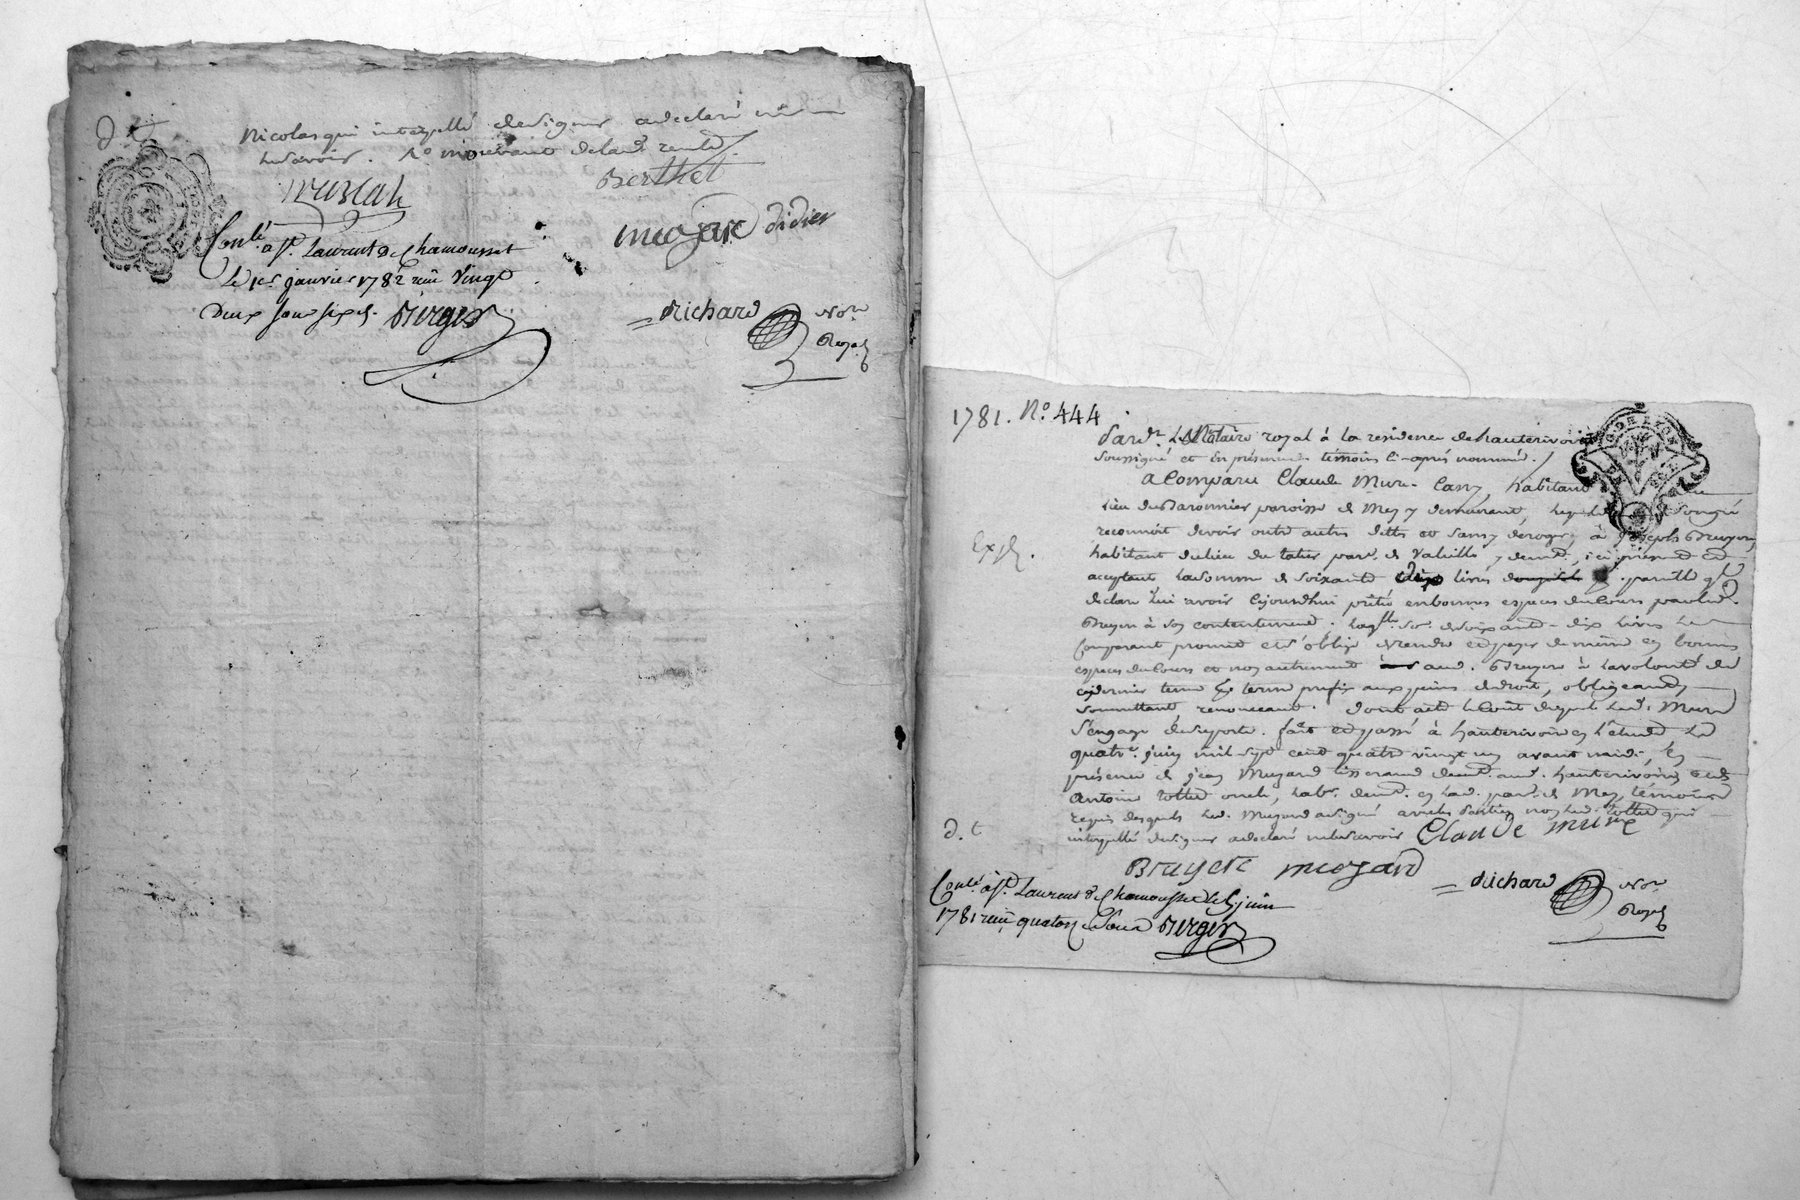 d. t.
Nicolas qui interpellé de signer a declaré ne
le savoir.
Berthet
mojard didier
Conlé. a St. Laurent de Chamousset
Le 1er janvier 1782 reçu Vingt
Deux sous six d. Berger
Richard Nore
Royal
1781. No. 444
Pardt. Le Notaire royal à la residence de hauterivoire
soussigné et En présence des témoins Ci-après nommés.
A Comparu Claude Mure- habitant
lieu du Baronnier paroisse de Meys y demeurant, lequel
reconnoit devoir outre autres dettes et sans y deroger, à Joseph Bruyere
Exp.
habitant du lieu du parse. de Valeille y demt., ici présent et
acceptant la somme de soixante dix livres pareille qt
declare lui avoir cejourdhui prêté en bonnes especes du Cours par led.
Bruyere à son contentement. laqlle. se. de soixante-dix livres le
Comparant promet et s'oblige de rendre et payer de même en bonnes
especes du Cours et non autrement aud. Bruyere à la volonté de
ce dernier terme prefix aux peines de droit, obligeant,
soumettant renonceant. dont acte le Coût duquel led. Mure
s'engage de supporter. fait et passé à hauterivoire en l'étude le
quatre juin mil sept cent quatre vingt un avant midi, En
présence de jean Mujard tisserand demt. aud. hauterivoire, et de
Antoine habt. demt. en lad. parse. de Meys, témoins
requis desquels led. Mujard a signé avec les parties non led. qui
d. t
interpellé de signer a declaré ne le savoir Claude mure
Bruyere mojard
Conlé. à St. Laurent de Chamousset le 5 juin
1781 reçu quatorze sous Berger
Richard Nore
Royal